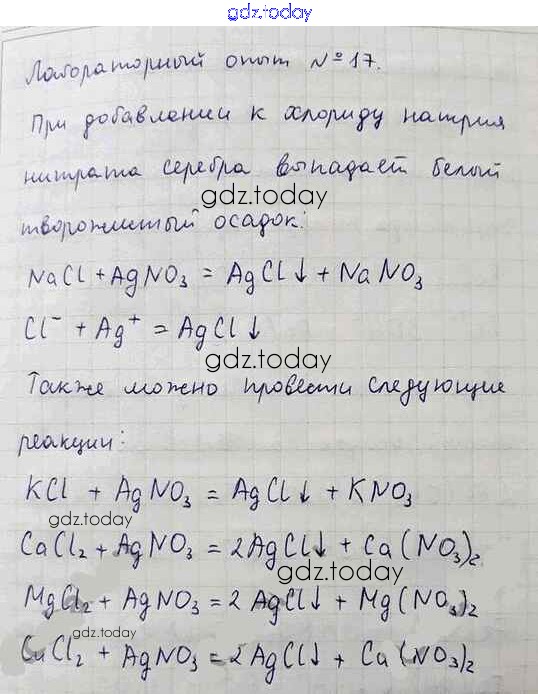 gdz.today
Лабораторный опыт №17.
При добавлении к хлориду натрия
нитрата серебра выпадает белый
gdz.today
творожистый осадок:
NaCl + AgNO₃ = AgCl↓ + NaNO₃
Cl⁻ + Ag⁺ = AgCl↓
gdz.today
Также можно провести следующие
реакции:
KCl + AgNO₃ = AgCl↓ + KNO₃
gdz.today
CaCl₂ + AgNO₃ = 2AgCl↓ + Ca(NO₃)₂
gdz.today
MgCl₂ + AgNO₃ = 2AgCl↓ + Mg(NO₃)₂
gdz.today
CuCl₂ + AgNO₃ = 2AgCl↓ + Ca(NO₃)₂